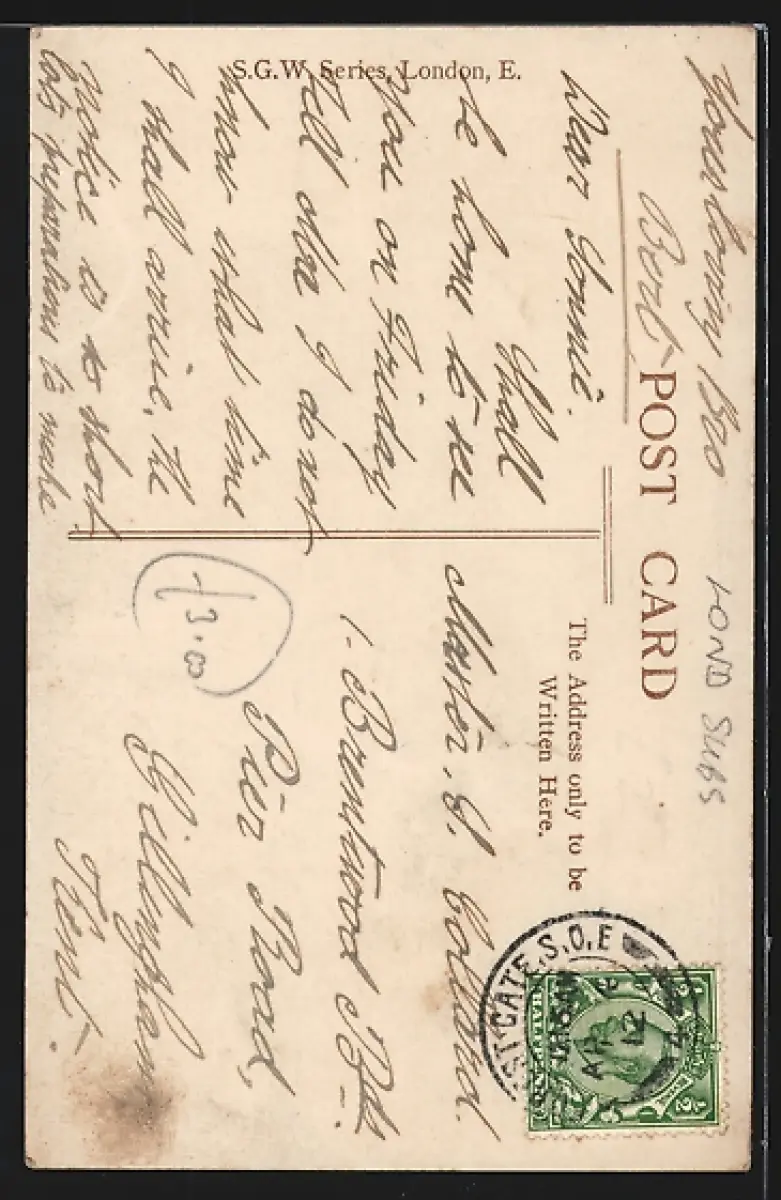 S.G.W. Series, London, E.
POST CARD
The Address only to be
Written Here.
LOND SUBS
Dear
Shall
be home to see
you on Friday
I do not
know what time
I shall arrive, the
notice is to short
lots preparations to make
Yours loving Bro
Bert
Master,
1. Brentwood
Pier Road,
Gillingham
Kent.
£3.00
GATE. S.O. E
12
14
HALFPENNY
½
½